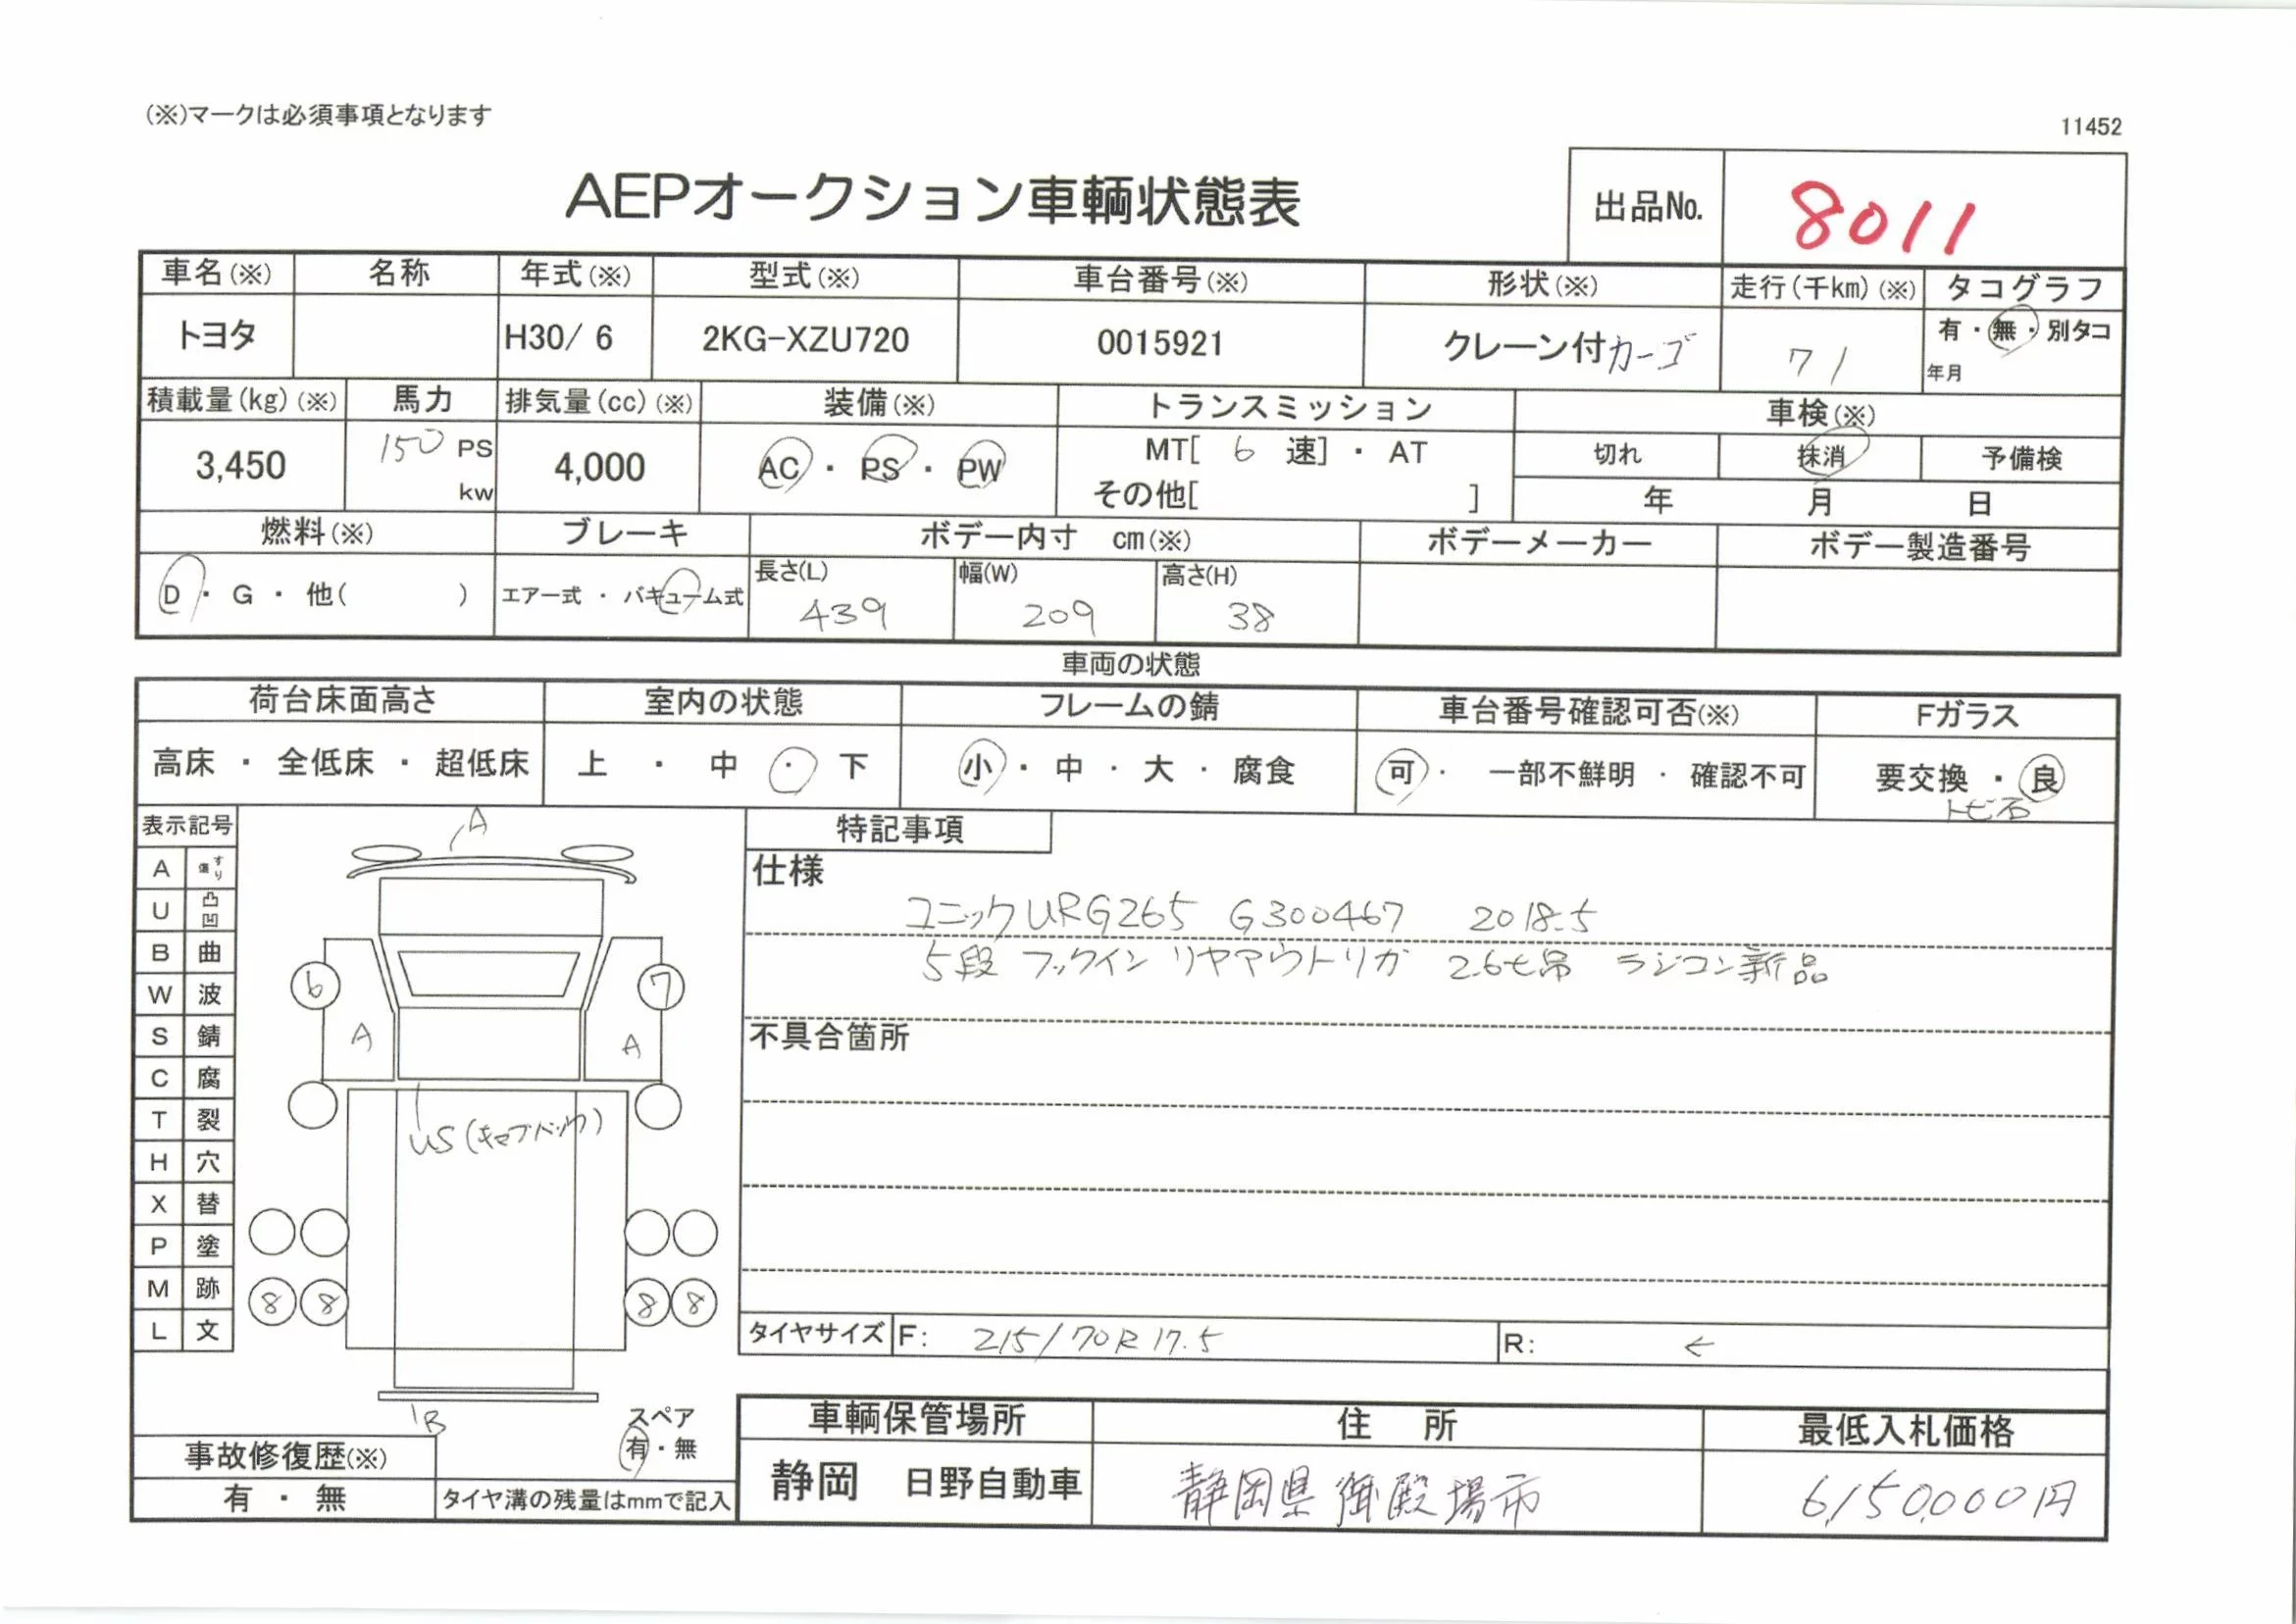 (※)マークは必須事項となります
11452
AEPオークション車輌状態表
出品No. 8011
車名(※) 名称 年式(※) 型式(※) 車台番号(※) 形状(※) 走行(千km)(※) タコグラフ
トヨタ H30/ 6 2KG-XZU720 0015921 クレーン付カーゴ 71 有・無・別タコ
年月
積載量(kg)(※) 馬力 排気量(cc)(※) 装備(※) トランスミッション 車検(※)
3,450 150 PS 4,000 AC・PS・PW MT[ 6 速]・AT 切れ 抹消 予備検
kw その他[ ] 年 月 日
燃料(※) ブレーキ ボデー内寸 cm(※) ボデーメーカー ボデー製造番号
D・G・他( ) エアー式・バキューム式 長さ(L) 439 幅(W) 209 高さ(H) 38
車両の状態
荷台床面高さ 室内の状態 フレームの錆 車台番号確認可否(※) Fガラス
高床・全低床・超低床 上・中・下 小・中・大・腐食 可・一部不鮮明・確認不可 要交換・良
トビ石
表示記号 A 特記事項
A すり傷 仕様
U 凸凹 ユニックURG265 G300467 2018.5
B 曲 5段 フックイン リヤアウトリガ 2.6t吊 ラジコン新品
W 波 6 7
S 錆 A A 不具合箇所
C 腐
T 裂 US(キャブバック)
H 穴
X 替
P 塗
M 跡 8 8 8 8
L 文 タイヤサイズ F: 215/70R17.5 R: ←
B スペア 車輌保管場所 住 所 最低入札価格
事故修復歴(※) 有・無 静岡 日野自動車 静岡県御殿場市 6,150,000円
有・無 タイヤ溝の残量はmmで記入